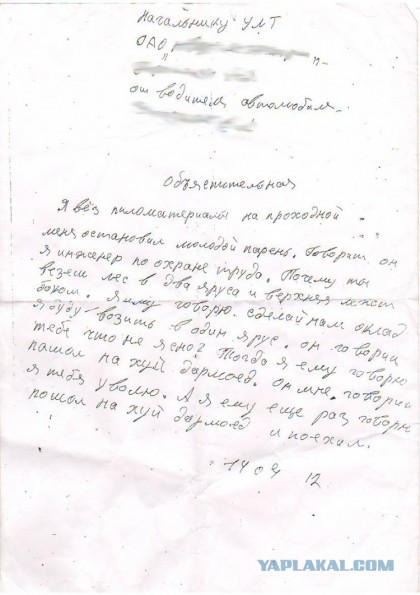 Начальнику УМТ
ОАО
от водителя автомобиля
Объяснительная
Я вёз пиломатериалы на проходной
меня остановил молодой парень. Говорит он
я инженер по охране труда. Почему ты
везеш лес в два яруса и верхняя лежит
боком. Я ему говорю. сделай нам оклад
я буду возить в один ярус. он говорит
тебе что не ясно? Тогда я ему говорю
пашол на хуй дармоед. он мне говорит
я тебя уволю. А я ему еще раз говорю
пошол на хуй дармоед и поехал.
14 04 12
YAPLAKAL.COM